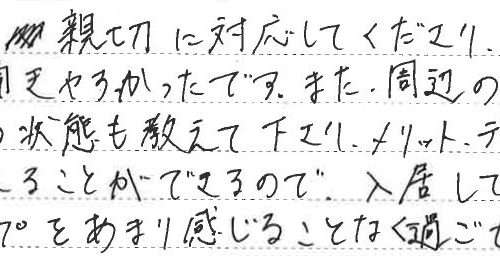 親切に対応してくださり、
やすかったです。また、周辺の
状態も教えて下さり、メリット、デ
ることができるので、入居して
プをあまり感じることなく過ごて